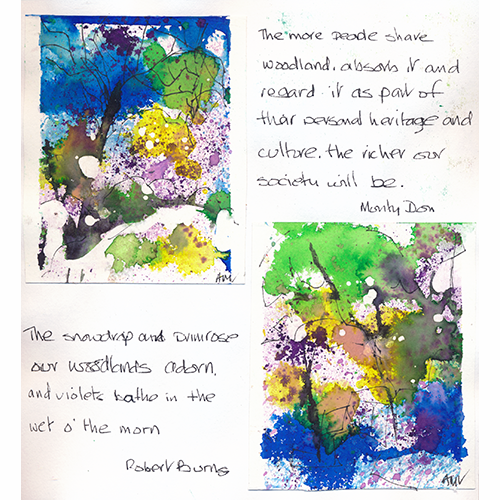 The more people share
woodland, absorb it and
regard it as part of
their personal heritage and
culture, the richer our
society will be.
Monty Don
The snowdrop and primrose
our woodlands adorn,
and violets bathe in the
wet o' the morn
Robert Burns